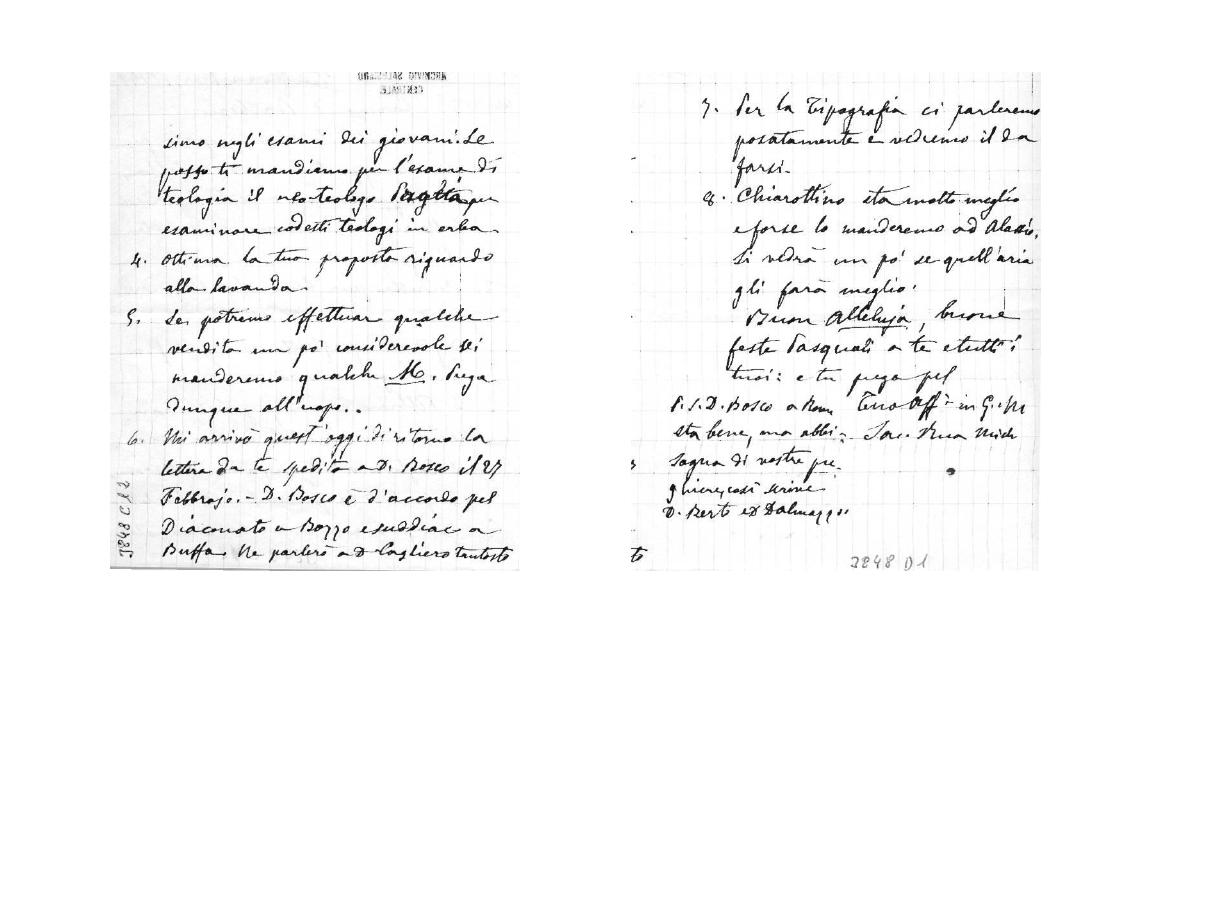 ARCHIVIO SALESIANO
CENTRALE
simo negli esami dei giovani. Se
posso ti mandiamo per l'esame di
teologia il neo-teologo per
esaminare codesti teologi in erba.
4. Ottima la tua proposta riguardo
alla lavanda.
5. Se potremo effettuar qualche
vendita un pò considerevole ti
manderemo qualche M. Prega
dunque all'uopo..
6. Mi arrivò quest'oggi di ritorno la
lettera da te spedita a D. Bosco il 27
Febbrajo. - D. Bosco è d'accordo pel
Diaconato a Bozzo e suddiac a
Buffa. Ne parlerò a D Cagliero tantosto
3848 C12
7. Per la Tipografia ci parleremo
posatamente e vedremo il da
farsi.
8. Chiarottino sta molto meglio
e forse lo manderemo ad Alassio,
Si vedrà un pò se quell'aria
gli farà meglio.
Buon Alleluja, buone
feste Pasquali a te e tutti i
tuoi: e tu prega pel
Tuo aff. in G. M
Sac. Rua Mich
P.S. D. Bosco a Roma
sta bene, ma abbi-
sogna di vostre pre-
ghiere, così scrive
D. Berto e D Dalmazzo
to
3848 D1